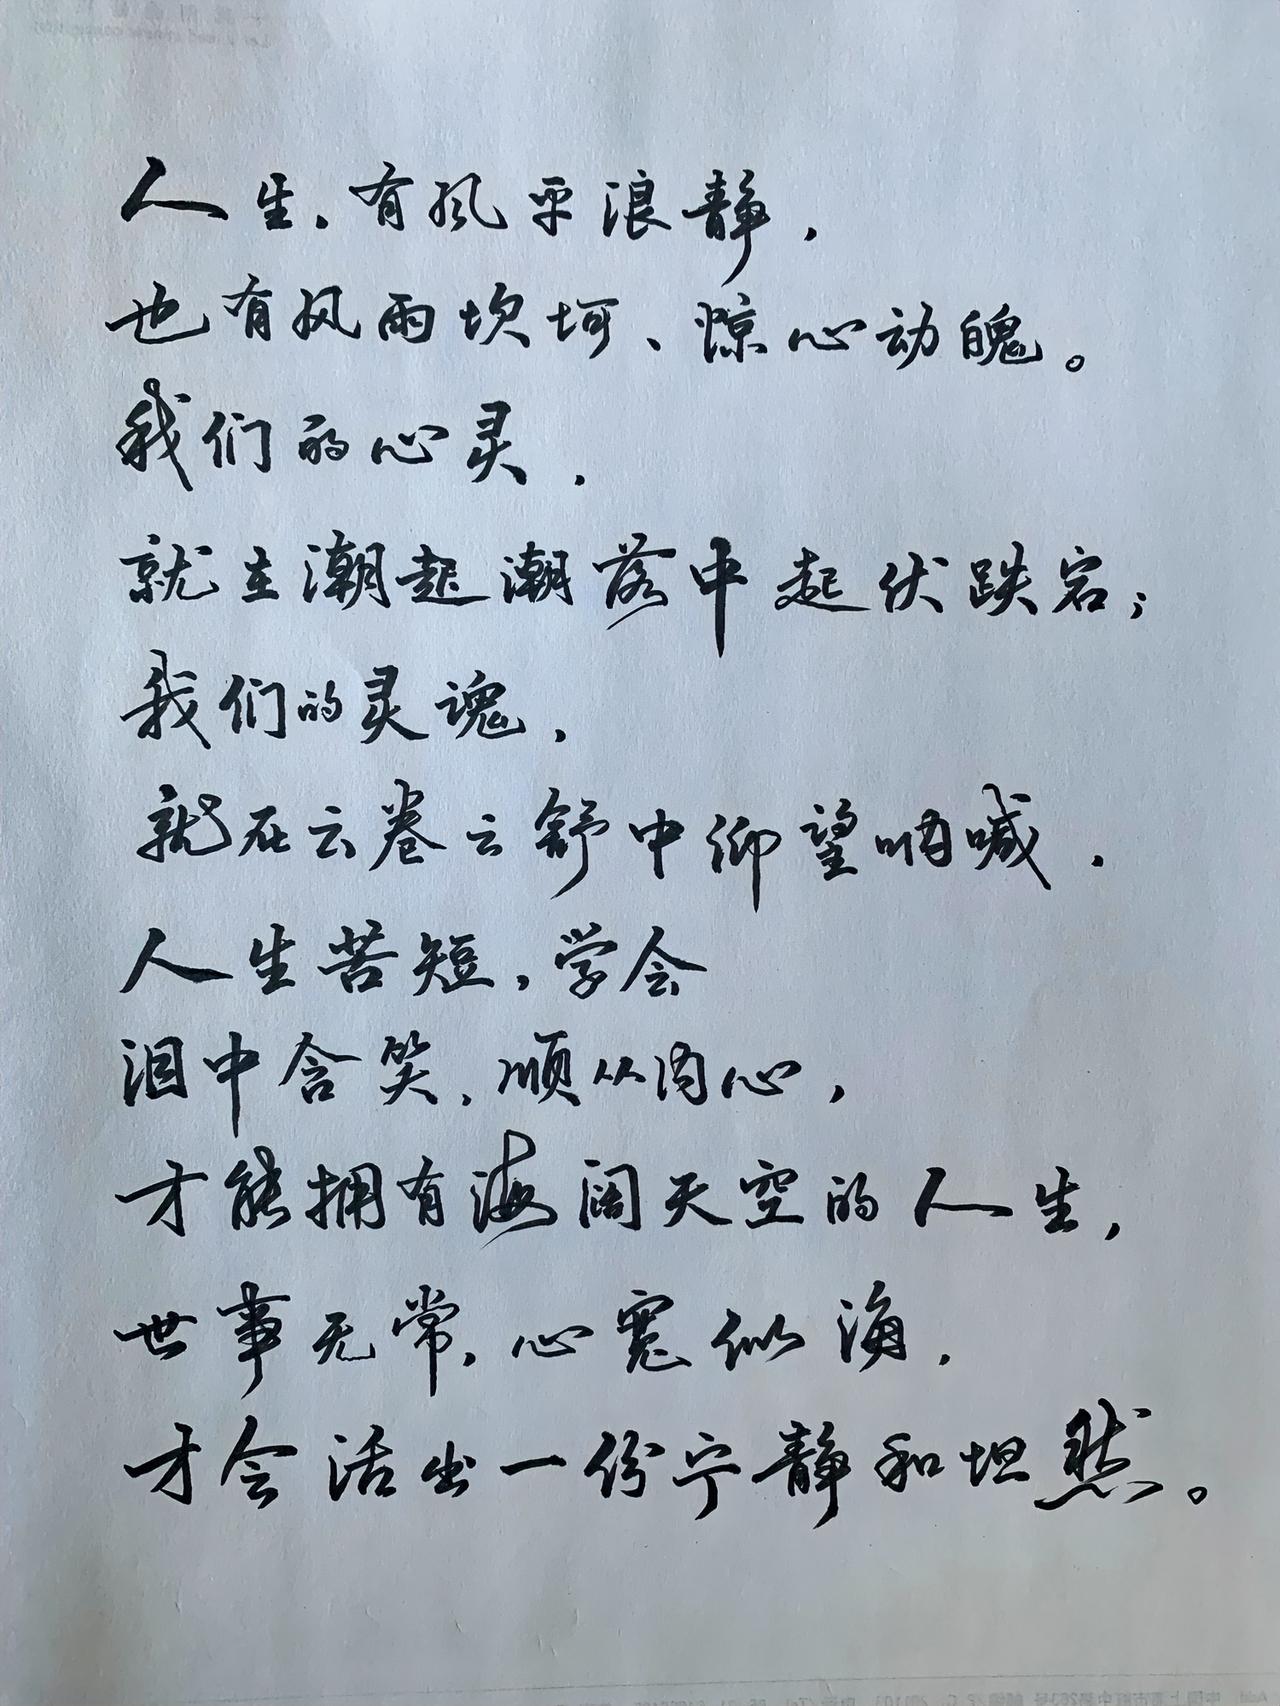 人生，有风平浪静，
也有风雨坎坷、惊心动魄。
我们的心灵，
就在潮起潮落中起伏跌宕；
我们的灵魂，
就在云卷云舒中仰望呐喊．
人生苦短，学会
泪中含笑，顺从内心，
才能拥有海阔天空的人生，
世事无常，心宽似海．
才会活出一份宁静和坦然。